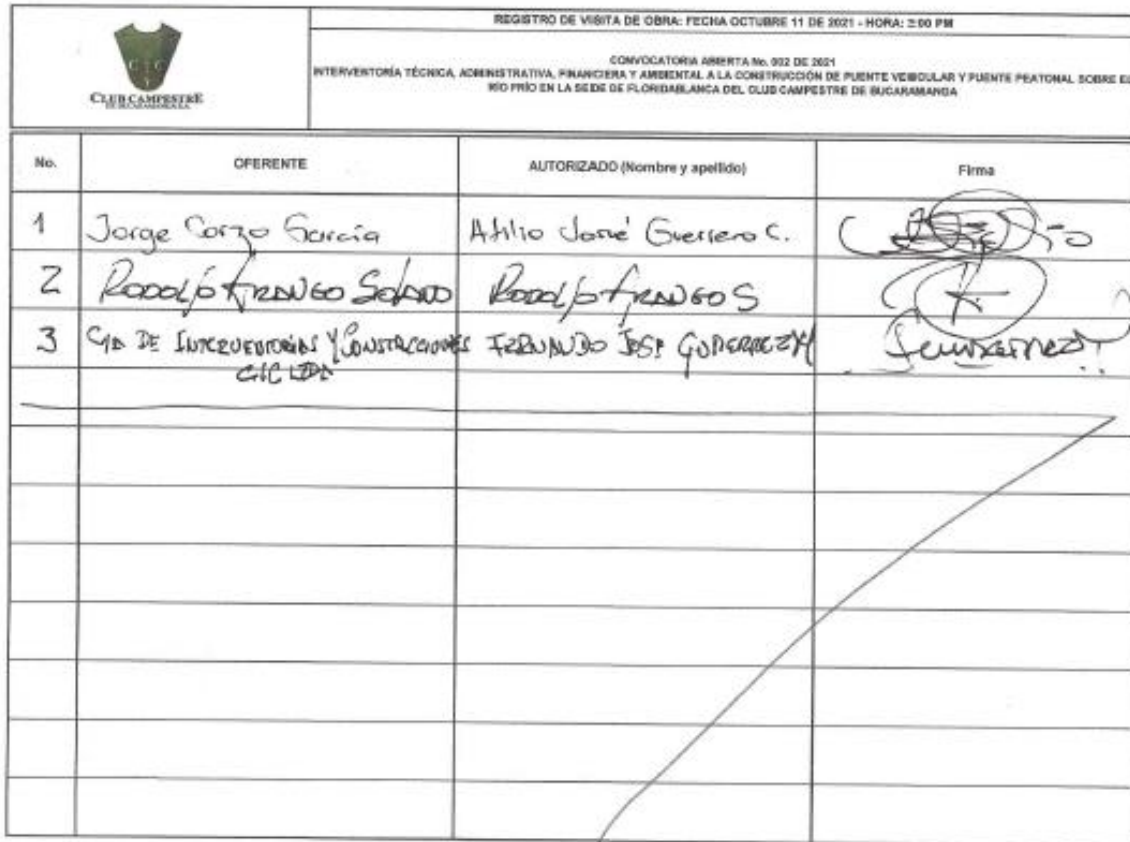 REGISTRO DE VISITA DE OBRA: FECHA OCTUBRE 11 DE 2021 - HORA: 2:00 PM
CONVOCATORIA ABIERTA No. 002 DE 2021
INTERVENTORÍA TÉCNICA, ADMINISTRATIVA, FINANCIERA Y AMBIENTAL A LA CONSTRUCCIÓN DE PUENTE VEHICULAR Y PUENTE PEATONAL SOBRE EL
RÍO FRÍO EN LA SEDE DE FLORIDABLANCA DEL CLUB CAMPESTRE DE BUCARAMANGA
CLUB CAMPESTRE
DE BUCARAMANGA S.A.
No. OFERENTE AUTORIZADO (Nombre y apellido) Firma
1 Jorge Corzo García Atilio José Guerrero C.
2 RODOLFO ARANGO SOLANO RODOLFO ARANGO S
3 CIA DE INTERVENTORIAS Y CONSTRUCCIONES FERNANDO JOSE GUTIERREZ
CIC LTDA